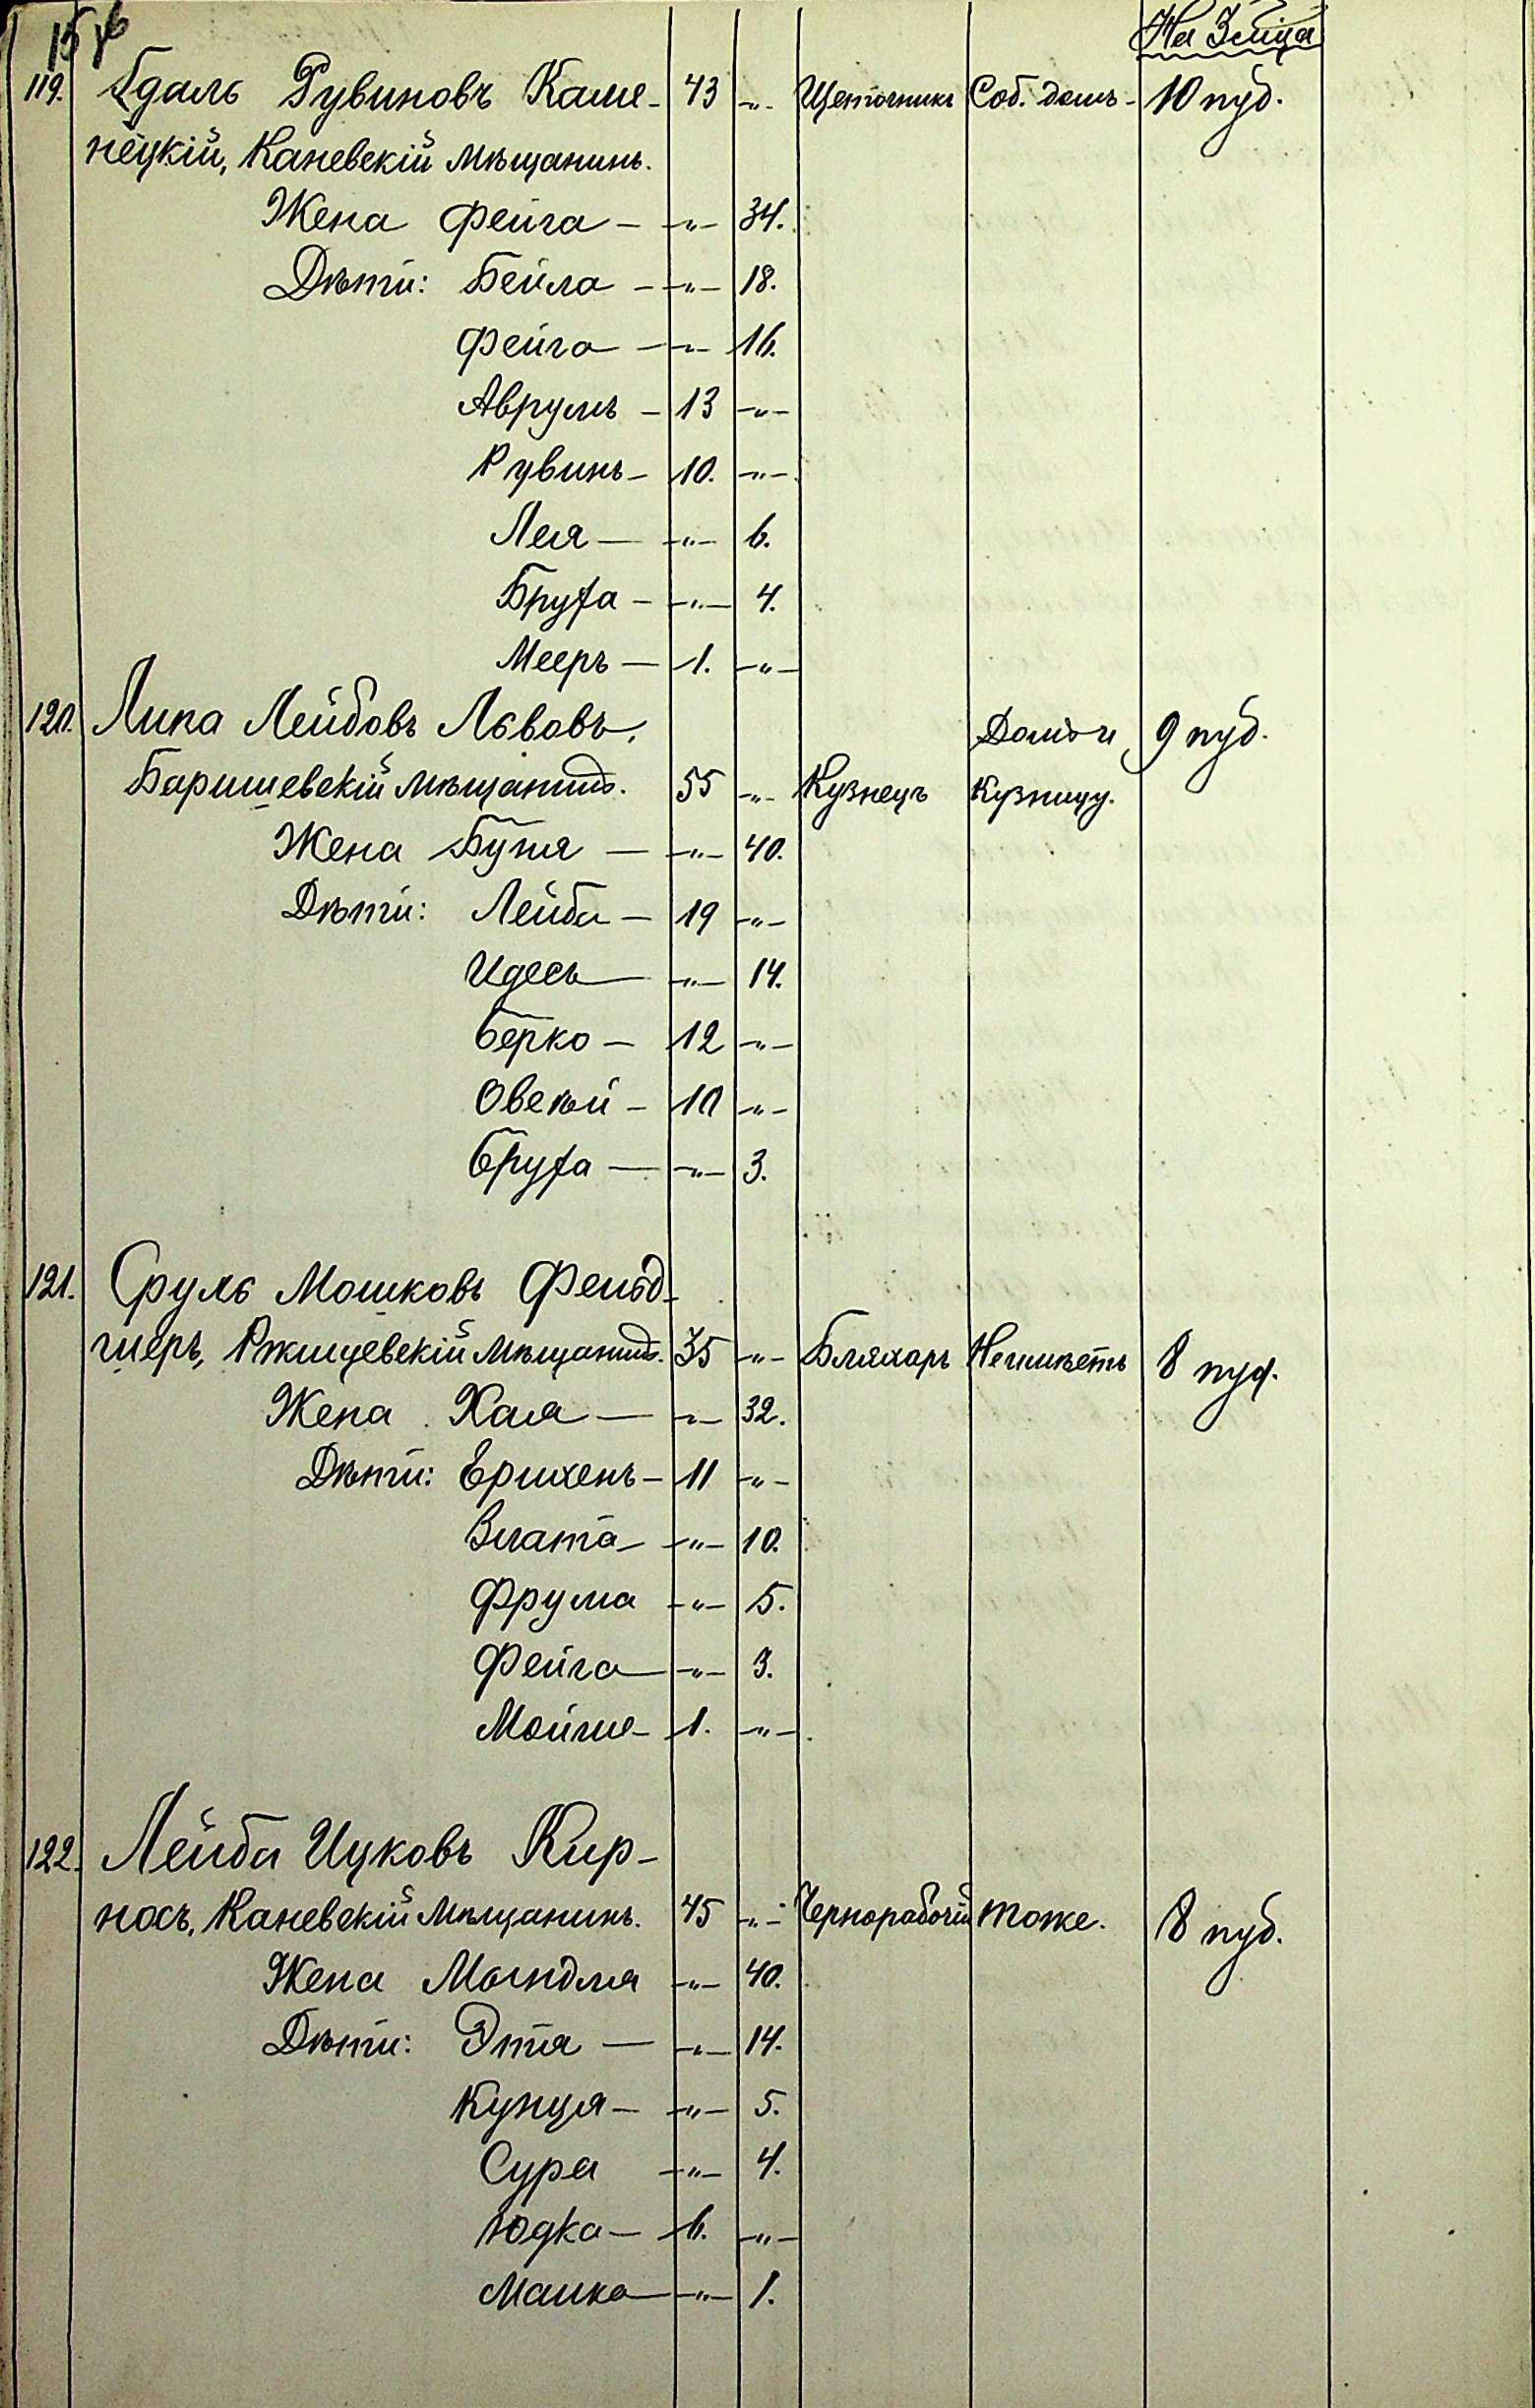 На 3 мѣсяца
119. Гдаль Рувиновъ Каме- 43 -"- Щеточникъ Соб. домъ- 10 пуд.
нецкій, Каневскій мѣщанинъ.
Жена Фейга - -"- 34.
Дѣти: Бейла - -"- 18.
Фейга - -"- 16.
Аврумъ - 13 -"-
Рувинъ - 10. -"-
Лея - -"- 6.
Бруха - -"- 4.
Мееръ - 1. -"-
120. Липа Лейбовъ Львовъ, Домъ и 9 пуд.
Баришевскій мѣщанинъ. 55 -"- Кузнецъ Кузницу.
Жена Буня - -"- 40.
Дѣти: Лейба - 19 -"-
Идесь - -"- 14.
Берко - 12 -"-
Овсѣй - 10 -"-
Бруха - -"- 3.
121. Сруль Мошковъ Фельд-
шеръ, Ржищевскій мѣщанинъ. 35 -"- Бляхарь Неимѣетъ 8 пуд.
Жена Хая - -"- 32.
Дѣти: Ерихенъ - 11 -"-
Злата - -"- 10.
Фрума -"- 5.
Фейга - -"- 3.
Мойше - 1. -"-
122. Лейба Ицковъ Кир-
носъ, Каневскій мѣщанинъ. 45 -"- Чернорабочій тоже. 8 пуд.
Жена Мандля -"- 40.
Дѣти: Этя - -"- 14.
Кунця - -"- 5.
Сура -"- 4.
Юдка - 6. -"-
Малка - -"- 1.